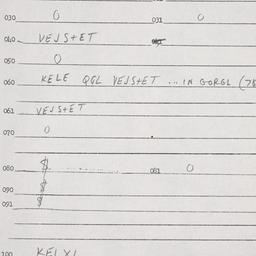 030 0 031 0
040 VEJStET
050 0
060 KELE QGL VEJStET ... IN GORGL (78
061 VEJStET
070 0
080 $ ............ 081 0
090 $
091 $
100 KELXL